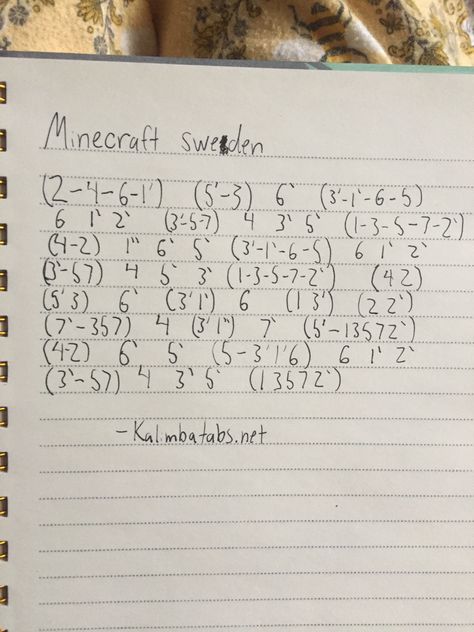 Minecraft sweden
(2-4-6-1') (5'-3) 6` (3'-1`-6-5)
6 1` 2` (3'-5-7) 4 3` 5` (1-3-5-7-2`)
(4-2) 1" 6` 5` (3'-1'-6-5) 6 1` 2`
(3'-57) 4 5` 3` (1-3-5-7-2`) (42)
(5'3) 6` (3'1') 6 (13') (22`)
(7`-357) 4 (3'1") 7` (5'-13572`)
(4-2) 6` 5` (5-3'1'6) 6 1` 2`
(3`-57) 4 3` 5` (13572`)
-Kalimbatabs.net